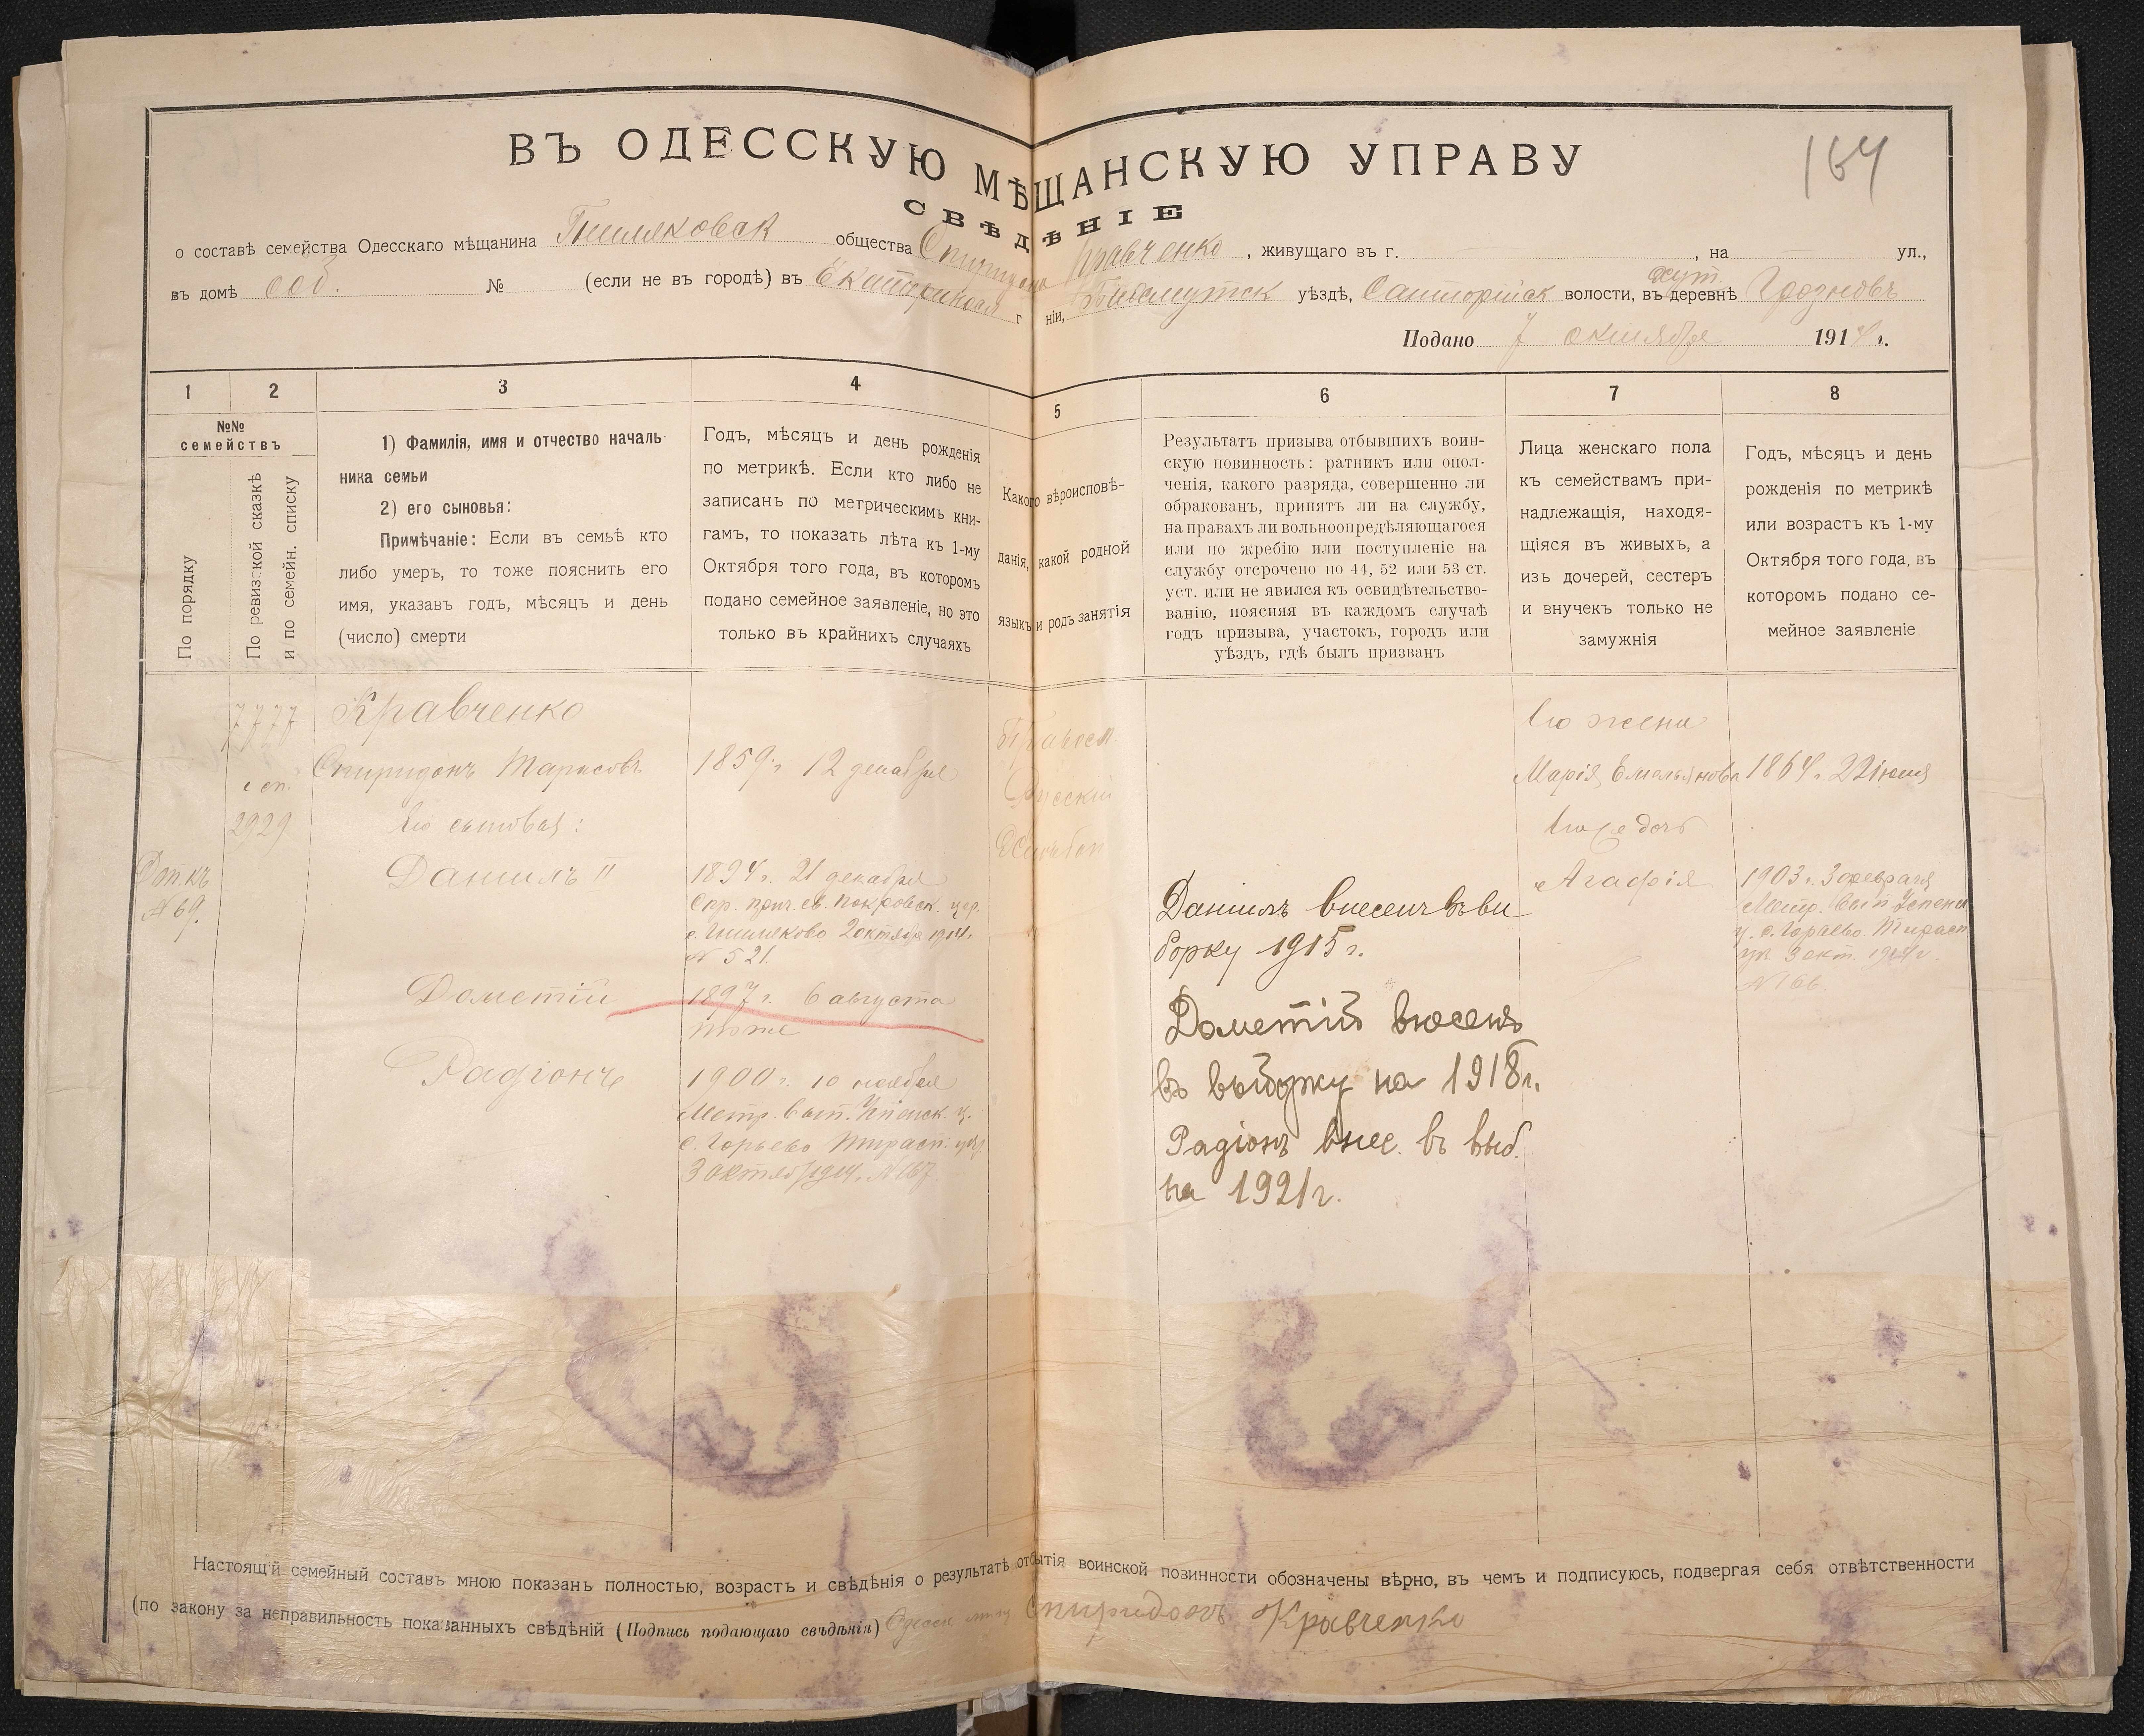 ВЪ ОДЕССКУЮ МѢЩАНСКУЮ УПРАВУ
164
СВѢДѢНІЕ
о составѣ семейства Одесскаго мѣщанина общества Спиридона Кравченко, живущаго въ г. — , на — ул.,
въ домѣ соб. № (если не въ городѣ) въ Екатериносл г ніи, Бахмутск уѣздѣ, волости, въ деревнѣ хут.
Подано 7 октября 1914 г.
1 2 3 4 5 6 7 8
№№ семействъ
По порядку
По ревизской сказкѣ
и по семейн. списку
1) Фамилія, имя и отчество началь-
ника семьи
2) его сыновья:
Примѣчаніе: Если въ семьѣ кто
либо умеръ, то тоже пояснить его
имя, указавъ годъ, мѣсяцъ и день
(число) смерти
Годъ, мѣсяцъ и день рожденія
по метрикѣ. Если кто либо не
записанъ по метрическимъ кни-
гамъ, то показать лѣта къ 1-му
Октября того года, въ которомъ
подано семейное заявленіе, но это
только въ крайнихъ случаяхъ
Какого вѣроисповѣ-
данія, какой родной
языкъ и родъ занятія
Результатъ призыва отбывшихъ воин-
скую повинность: ратникъ или опол-
ченія, какого разряда, совершенно ли
обракованъ, принятъ ли на службу,
на правахъ ли вольноопредѣляющагося
или по жребію или поступленіе на
службу отсрочено по 44, 52 или 53 ст.
уст. или не явился къ освидѣтельство-
ванію, поясняя въ каждомъ случаѣ
годъ призыва, участокъ, городъ или
уѣздъ, гдѣ былъ призванъ
Лица женскаго пола
къ семействамъ при-
надлежащія, находя-
щіяся въ живыхъ, а
изъ дочерей, сестеръ
и внучекъ только не
замужнія
Годъ, мѣсяцъ и день
рожденія по метрикѣ
или возрастъ къ 1-му
Октября того года, въ
которомъ подано се-
мейное заявленіе
7777
2929
№ 69.
Кравченко
Спиридонъ Тарасовъ
Его сыновья:
Даниилъ II
Дометій
Радіонъ
1859 г. 12 декабря
1894 г. 21 декабря
Спр. прич. св. Покровск. цер.
2 октября 1914 г.
№ 521.
1897 г. 6 августа
тоже
1900 г. 10 ноября
Метр. вып. Успенск. ц.
с. Горьево Тирасп. уѣз.
3 октяб 1914 г. № 167.
Правосл.
Русский
Даниилъ внесенъ въ вы
борку 1915 г.
Дометій внесенъ
въ выборку на 1918 г.
Радіонъ внес. въ выб.
на 1921 г.
Его жена
Марія Емельянова
Его дочь
Агафія
1864 г. 22 іюля
1903 г. 3 февраля
Метр. вып. Успенск
ц. с. Горьево Тирасп
уѣз 3 окт. 1914 г.
№ 166.
Настоящій семейный составъ мною показанъ полностью, возрастъ и свѣдѣнія о результатѣ отбытія воинской повинности обозначены вѣрно, въ чемъ и подписуюсь, подвергая себя отвѣтственности
(по закону за неправильность показанныхъ свѣдѣній (Подпись подающаго свѣдѣнія) Спиридонъ Кравченко